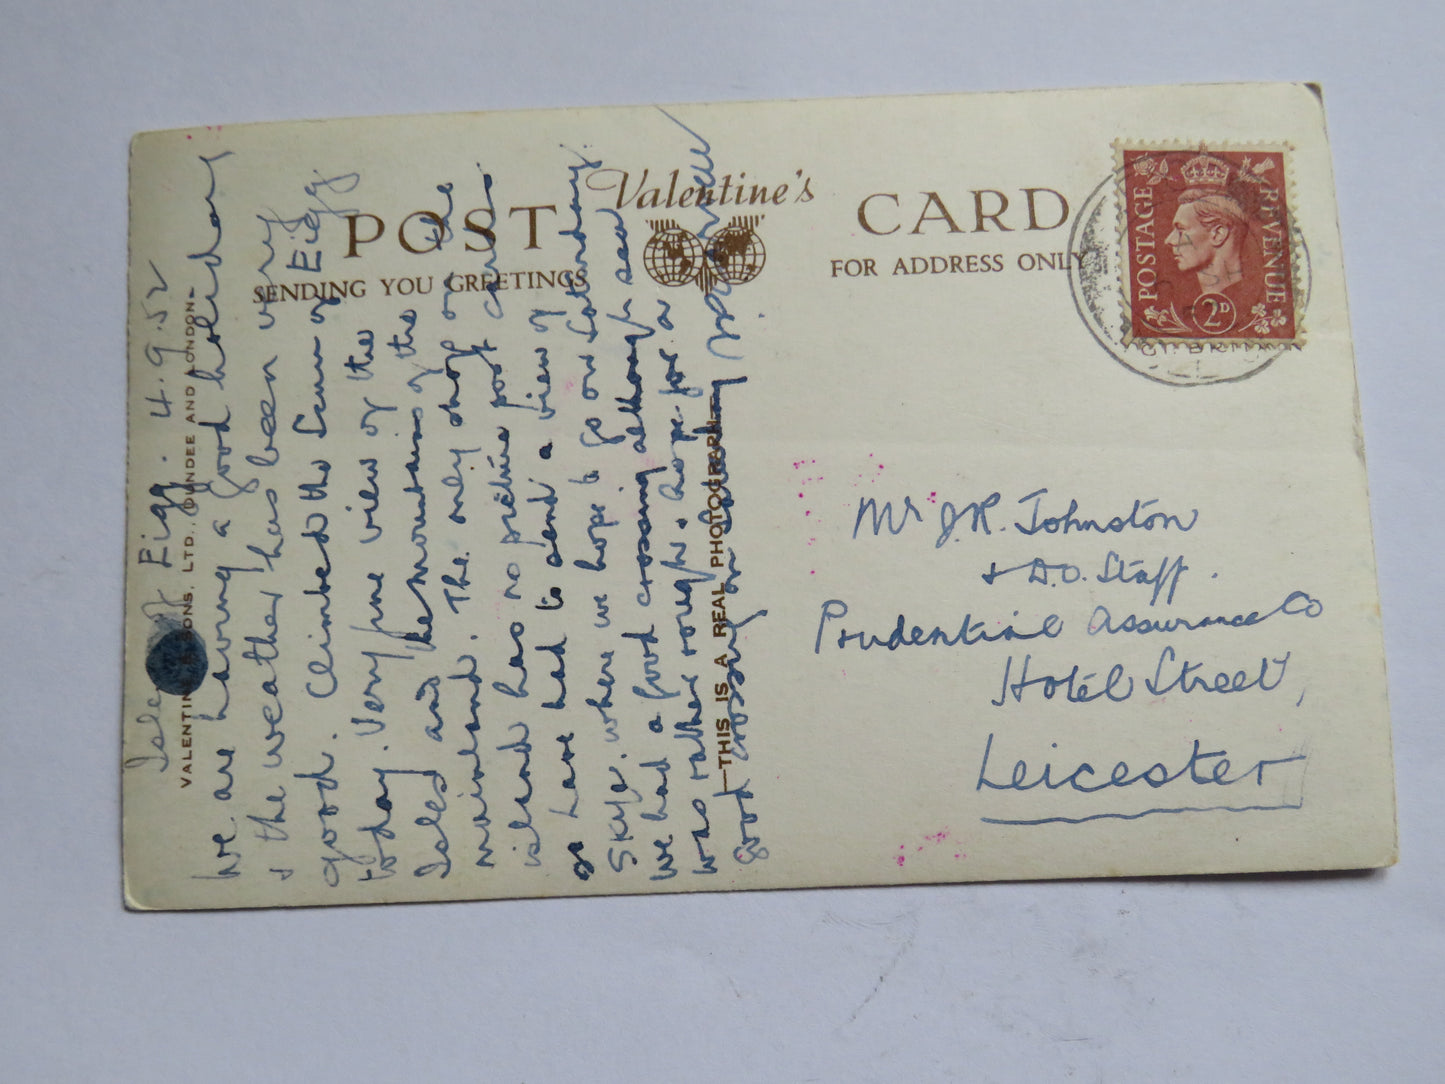 POST
Valentine's
CARD
SENDING YOU GREETINGS
FOR ADDRESS ONLY
POSTAGE
REVENUE
2D
GT. BRITAIN
VALENTINE & SONS, LTD., DUNDEE AND LONDON.
THIS IS A REAL PHOTOGRAPH.
Isle of Eigg. 4.9.52
We are having a good holiday
& the weather has been very
good. Climbed the Scurr of Eigg
today. Very fine view of the
Isles and the mountains of the
mainland. The only shop on the
island has no picture post cards
so have had to send a view of
Skye. where we hope to go on Saturday.
We had a good crossing although sea
was rather rough. hope for a
good crossing on Saturday
Mr J.R. Johnston
& D.O. Staff.
Prudential Assurance Co
Hotel Street,
Leicester